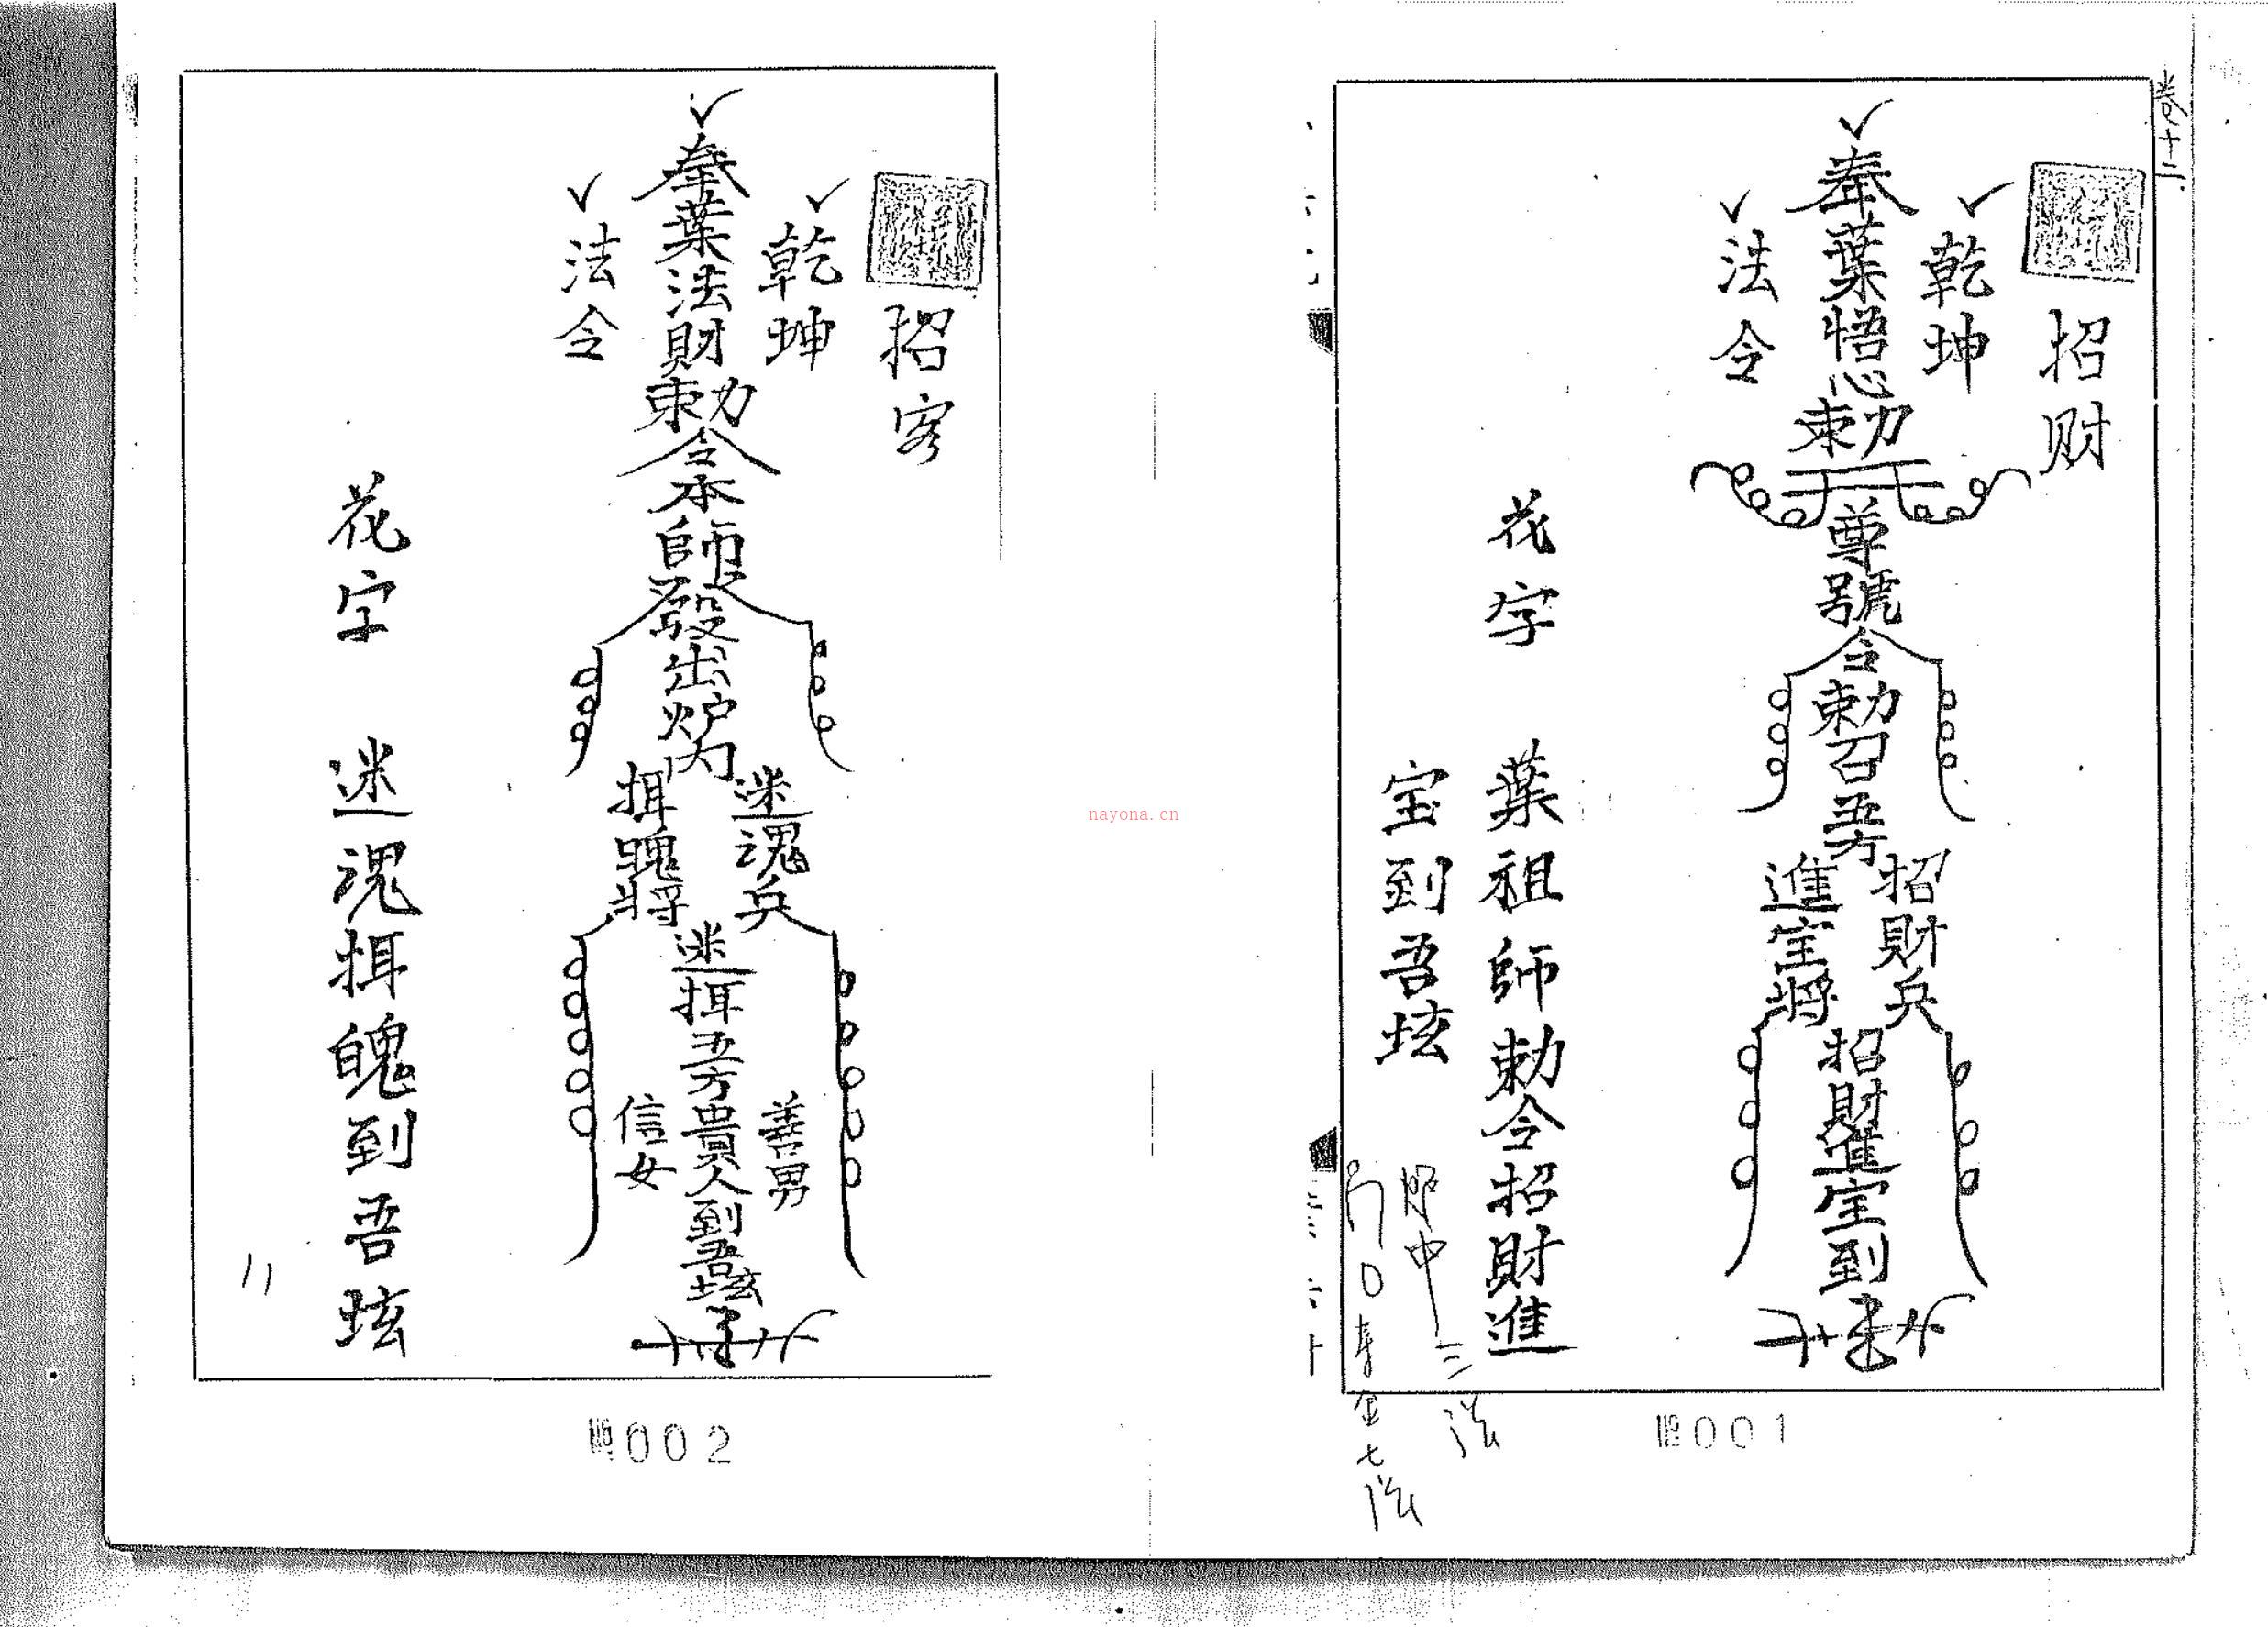 卷十二
招财
乾坤
奉葉悟心勅
尊號令勅召五方
招財兵
進宝將
招財進宝到
法令
花字 葉祖師勅令招財進
宝到吾坛
001
招客
乾坤
奉葉法財勅令本師發出炉内
迷魂兵
挕魄將
迷挕五方貴人到吾坛
善男
信女
法令
花字 迷魂挕魄到吾坛
002
nayona.cn